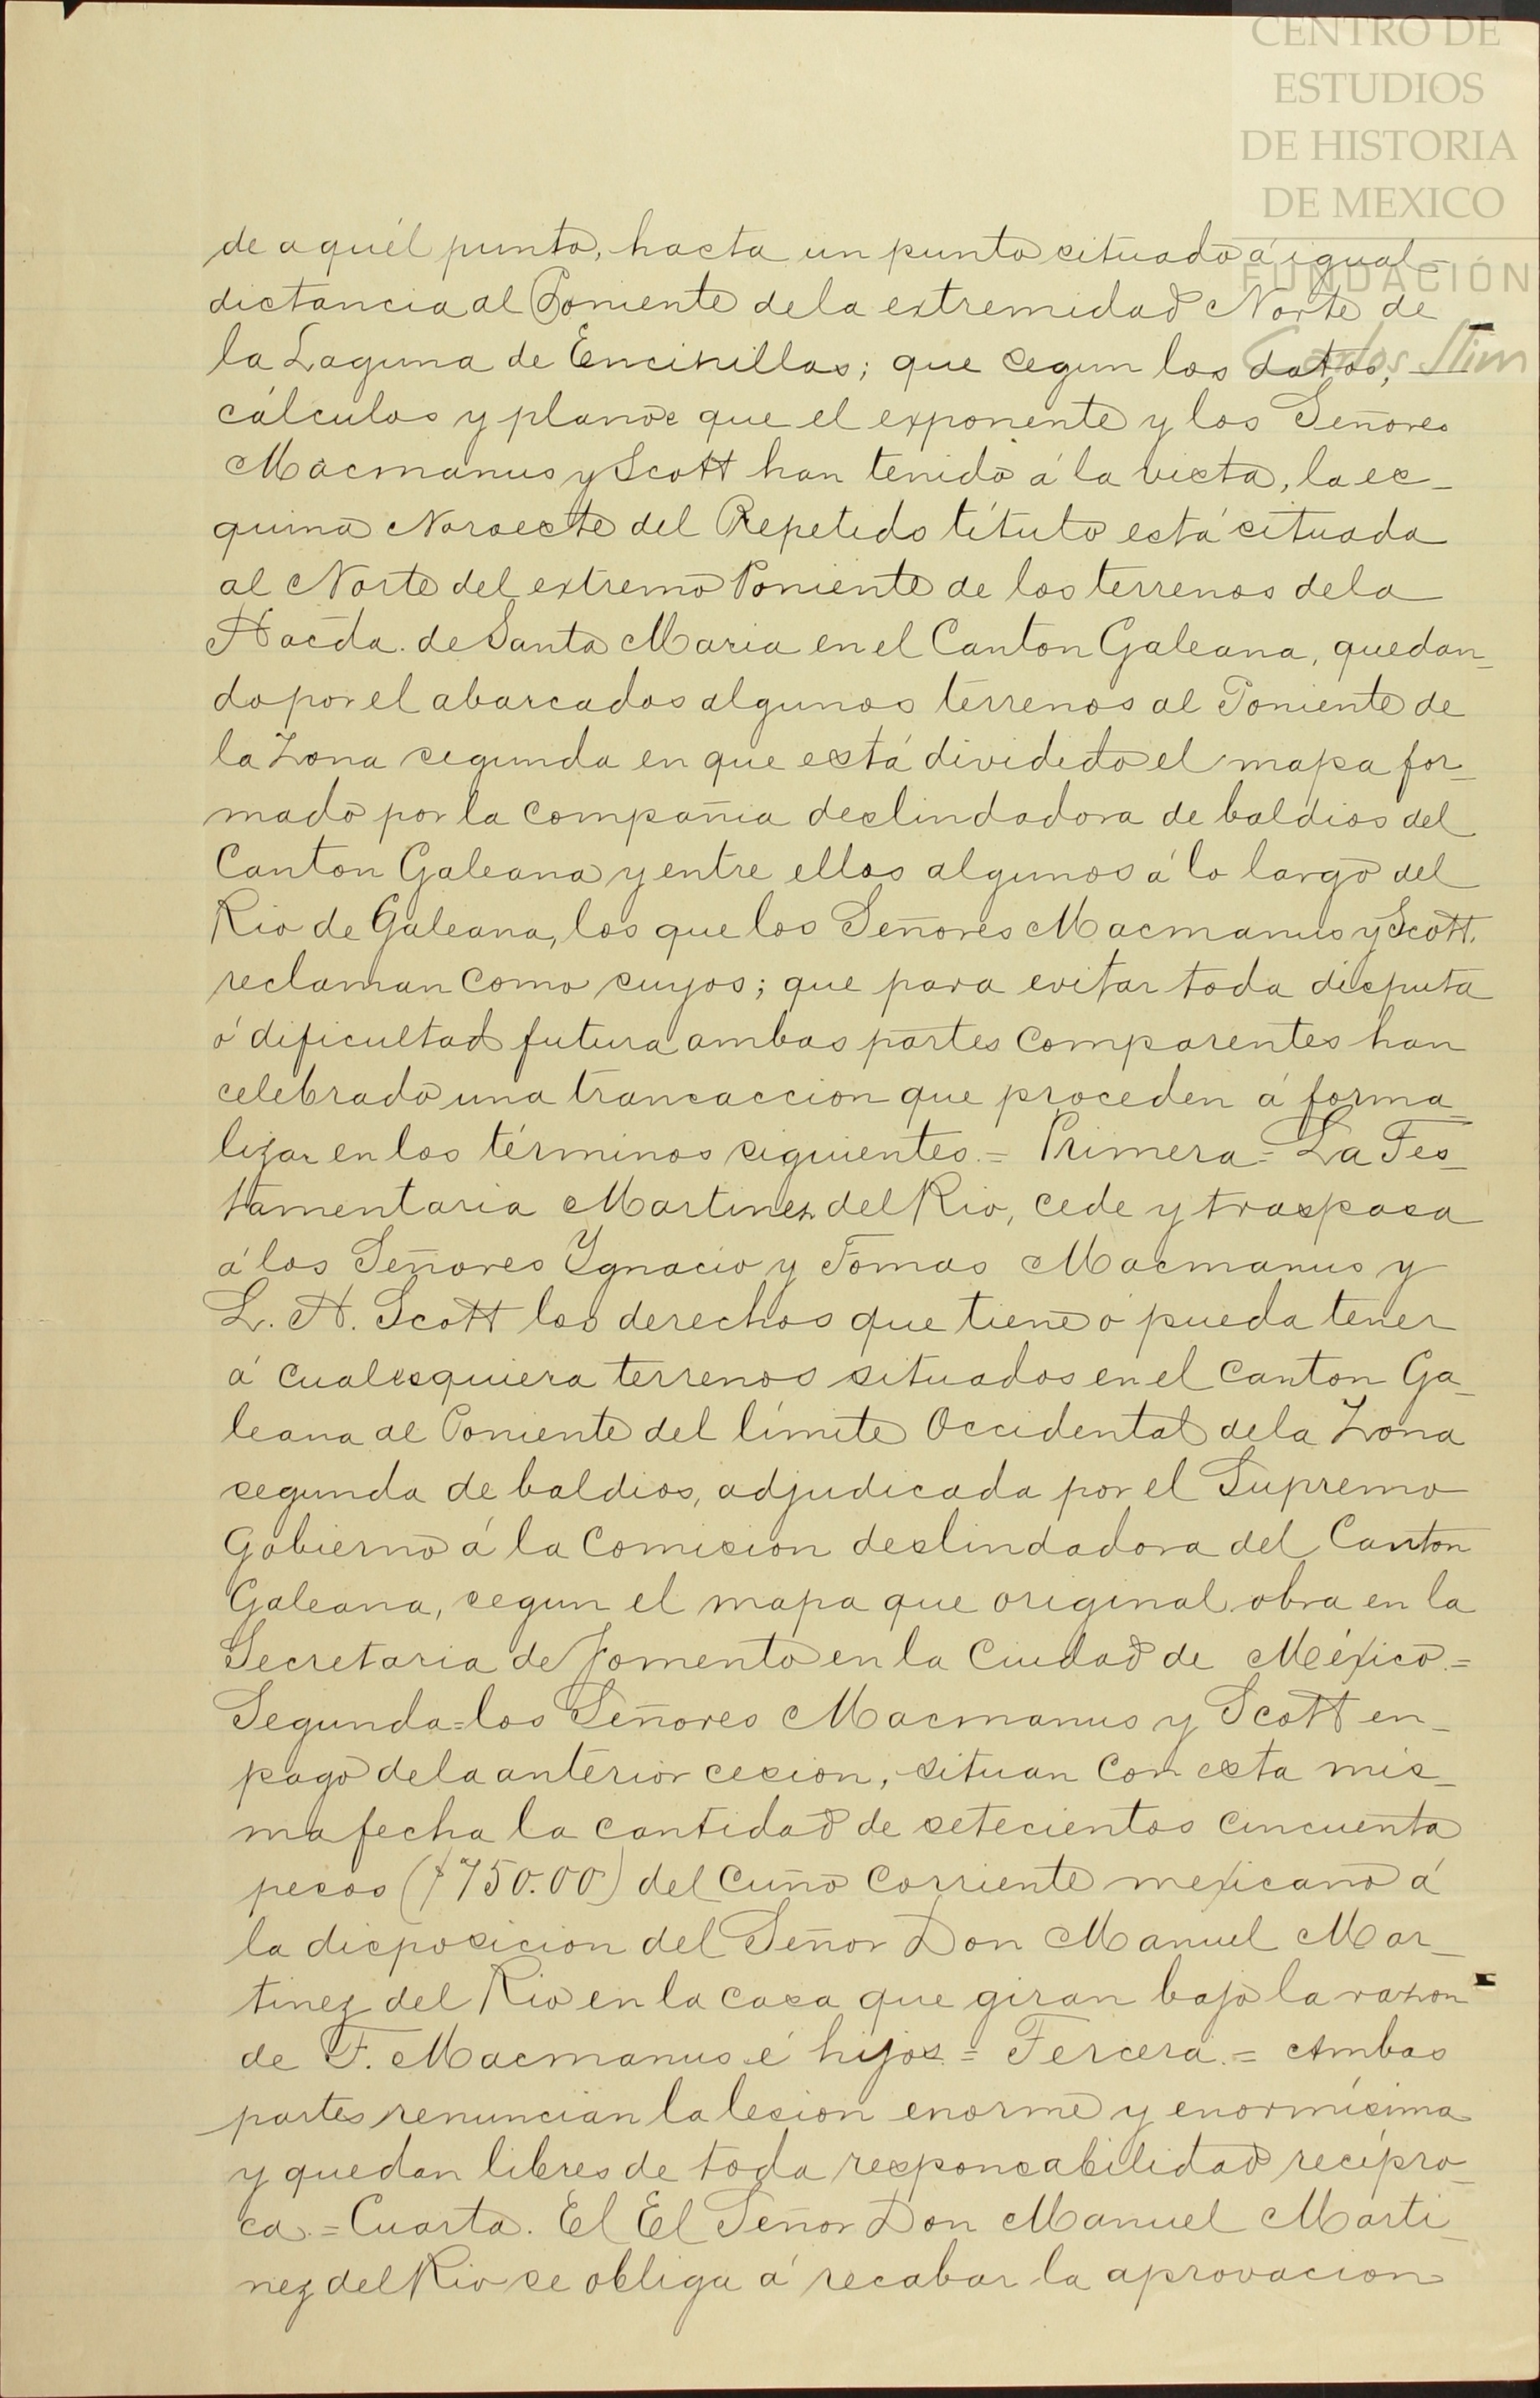 CENTRO DE
ESTUDIOS
DE HISTORIA
DE MEXICO
FUNDACIÓN
Carlos Slim
de aquél punto, hasta un punto situado á igual
distancia al Poniente de la extremidad Norte de
la Laguna de Encinillas; que segun los datos,
cálculos y planos que el exponente y los Señores
Macmanus y Scott han tenido á la vista, la es_
quina Noroeste del Repetido título está situada
al Norte del extremo Poniente de los terrenos de la
Hacda. de Santa Maria en el Canton Galeana, quedan_
do por el abarcados algunos terrenos al Poniente de
la Zona segunda en que está dividido el mapa for_
mado por la Compañia deslindadora de baldios del
Canton Galeana y entre ellos algunos á lo largo del
Rio de Galeana, los que los Señores Macmanus y Scott.
reclaman como suyos; que para evitar toda disputa
ó dificultad futura ambas partes comparentes han
celebrado una transaccion que proceden á forma_
lizar en los términos siguientes.= Primera= La Tes_
tamentaria Martinez del Rio, cede y traspasa
á los Señores Ygnacio y Tomas Macmanus y
L. H. Scott los derechos que tiene ó pueda tener
á cualesquiera terrenos situados en el Canton Ga_
leana al Poniente del límite Occidental de la Zona
segunda de baldios, adjudicada por el Supremo
Gobierno á la Comision deslindadora del Canton
Galeana, segun el mapa que original obra en la
Secretaria de Fomento en la Ciudad de México.=
Segunda=los Señores Macmanus y Scott en_
pago de la anterior cesion, situan con esta mis_
ma fecha la cantidad de setecientos cincuenta
pesos ($750.00) del cuño corriente mexicano á
la disposicion del Señor Don Manuel Mar_
tinez del Rio en la casa que giran bajo la razon
de F. Macmanus é hijos = Tercera.= Ambas
partes renuncian la lesion enorme y enormísima
y quedan libres de toda responsabilidad recípro_
ca.=Cuarta. El El Señor Don Manuel Marti_
nez del Rio se obliga á recabar la aprovacion